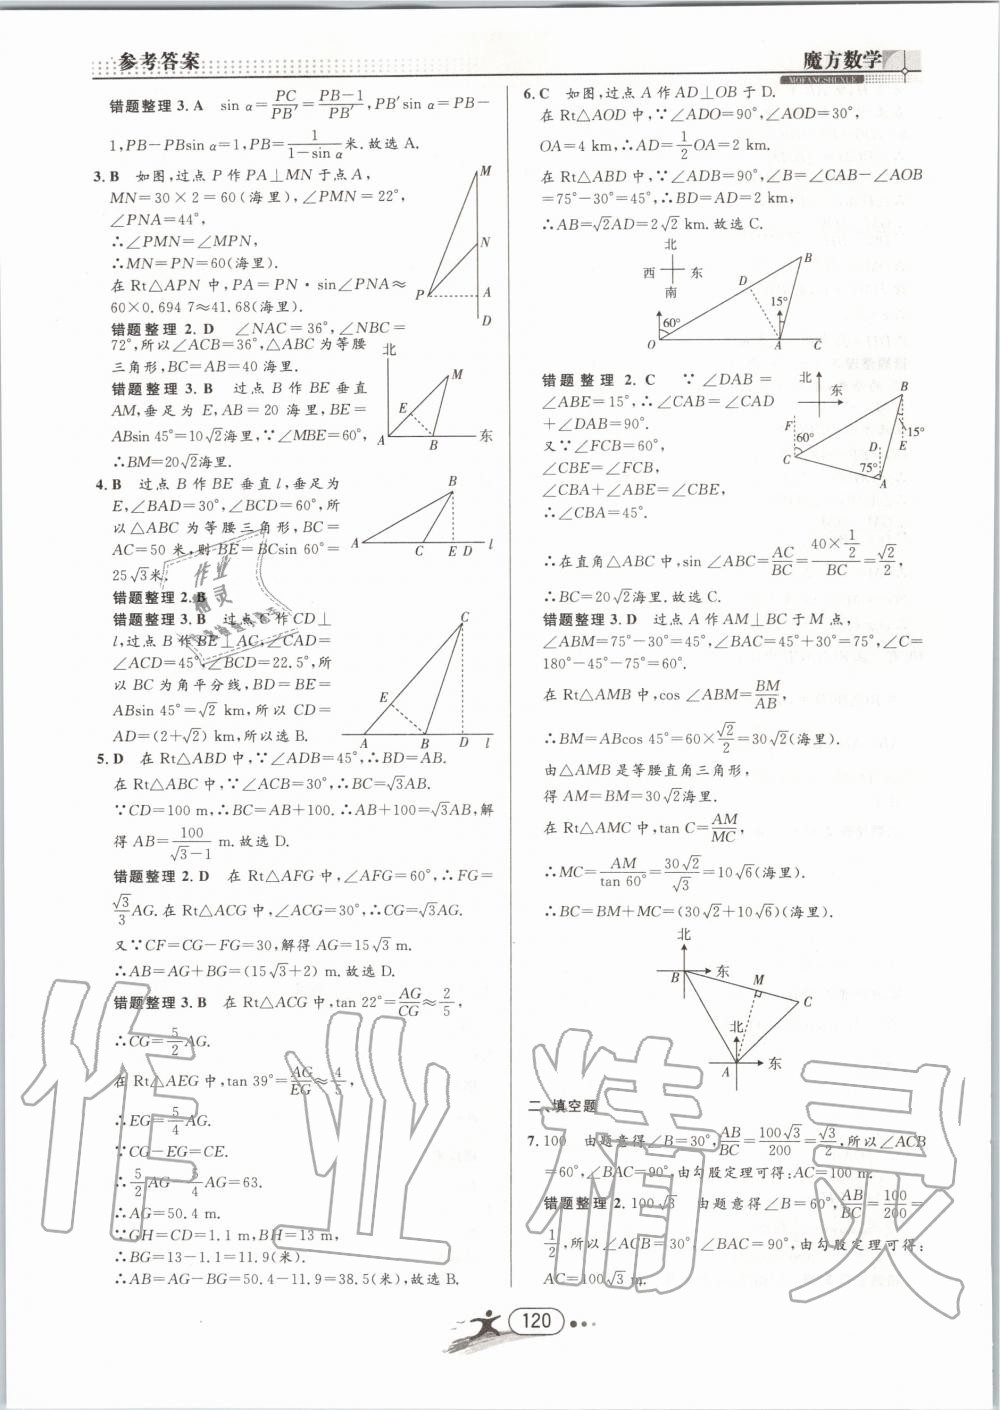 参考答案
魔方数学
MOFANGSHUXUE
错题整理 3. A sin α=PC/PB′=(PB-1)/PB′,PB′sin α=PB-
1,PB-PBsin α=1,PB=1/(1-sin α)米.故选 A.
3. B 如图,过点 P 作 PA⊥MN 于点 A,
MN=30×2=60(海里),∠PMN=22°,
∠PNA=44°,
∴∠PMN=∠MPN,
∴MN=PN=60(海里).
在 Rt△APN 中,PA=PN·sin∠PNA≈
60×0.694 7≈41.68(海里).
M
N
P
A
D
错题整理 2. D ∠NAC=36°,∠NBC=
72°,所以∠ACB=36°,△ABC 为等腰
三角形,BC=AB=40 海里.
错题整理 3. B 过点 B 作 BE 垂直
AM,垂足为 E,AB=20 海里,BE=
ABsin 45°=10√2海里.∵∠MBE=60°,
∴BM=20√2海里.
北
M
E
A
B
东
4. B 过点 B 作 BE 垂直 l,垂足为
E,∠BAD=30°,∠BCD=60°,所
以△ABC 为等腰三角形,BC=
AC=50 米,则 BE=BCsin 60°=
25√3米.
B
A C E D l
错题整理 2. B
错题整理 3. B 过点 C 作 CD⊥
l,过点 B 作 BE⊥AC,∠CAD=
∠ACD=45°,∠BCD=22.5°,所
以 BC 为角平分线,BD=BE=
ABsin 45°=√2 km,所以 CD=
AD=(2+√2) km,所以选 B.
C
E
A B D l
5. D 在 Rt△ABD 中,∵∠ADB=45°,∴BD=AB.
在 Rt△ABC 中,∵∠ACB=30°,∴BC=√3AB.
∵CD=100 m,∴BC=AB+100.∴AB+100=√3AB,解
得 AB=100/(√3-1) m.故选 D.
错题整理 2. D 在 Rt△AFG 中,∠AFG=60°,∴FG=
√3/3AG.在 Rt△ACG 中,∠ACG=30°,∴CG=√3AG.
又∵CF=CG-FG=30,解得 AG=15√3 m.
∴AB=AG+BG=(15√3+2) m.故选 D.
错题整理 3. B 在 Rt△ACG 中,tan 22°=AG/CG≈2/5,
∴CG=5/2AG.
在 Rt△AEG 中,tan 39°=AG/EG≈4/5,
∴EG=5/4AG.
∵CG-EG=CE.
∴5/2AG-5/4AG=63.
∴AG=50.4 m.
∵GH=CD=1.1 m,BH=13 m,
∴BG=13-1.1=11.9(米).
∴AB=AG-BG=50.4-11.9=38.5(米),故选 B.
6. C 如图,过点 A 作 AD⊥OB 于 D.
在 Rt△AOD 中,∵∠ADO=90°,∠AOD=30°,
OA=4 km,∴AD=1/2OA=2 km.
在 Rt△ABD 中,∵∠ADB=90°,∠B=∠CAB-∠AOB
=75°-30°=45°,∴BD=AD=2 km,
∴AB=√2AD=2√2 km.故选 C.
北
西 东
南
B
D
15°
60°
O A C
错题整理 2. C ∵∠DAB=
∠ABE=15°,∴∠CAB=∠CAD
+∠DAB=90°.
又∵∠FCB=60°,
∠CBE=∠FCB,
∠CBA+∠ABE=∠CBE,
∴∠CBA=45°.
北
东
B
F
60°
15°
D E
C
75°
A
∴在直角△ABC 中,sin∠ABC=AC/BC=(40×1/2)/BC=√2/2,
∴BC=20√2海里.故选 C.
错题整理 3. D 过点 A 作 AM⊥BC 于 M 点,
∠ABM=75°-30°=45°,∠BAC=45°+30°=75°,∠C=
180°-45°-75°=60°.
在 Rt△AMB 中,cos∠ABM=BM/AB,
∴BM=ABcos 45°=60×√2/2=30√2(海里).
由△AMB 是等腰直角三角形,
得 AM=BM=30√2海里.
在 Rt△AMC 中,tan C=AM/MC,
∴MC=AM/tan 60°=30√2/√3=10√6(海里).
∴BC=BM+MC=(30√2+10√6)(海里).
北
B 东
M
C
北
A 东
二、填空题
7. 100 由题意得∠B=30°,AB/BC=100√3/200=√3/2,所以∠ACB
=60°,∠BAC=90°,由勾股定理可得:AC=100 m.
错题整理 2. 100√3 由题意得∠B=60°,AB/BC=100/200=
1/2,所以∠ACB=30°,∠BAC=90°,由勾股定理可得:
AC=100√3 m.
120
作业精灵
作业
精灵